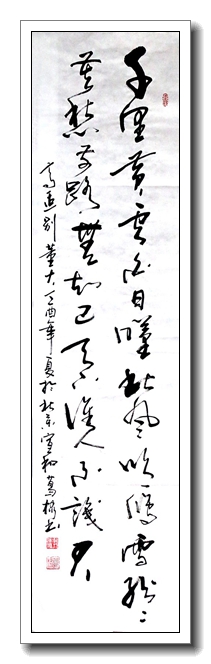 千里黄云白日曛北风吹雁雪纷〻
莫愁前路無知己天下谁人不識君
高适别董大丁酉年夏於北京宣和